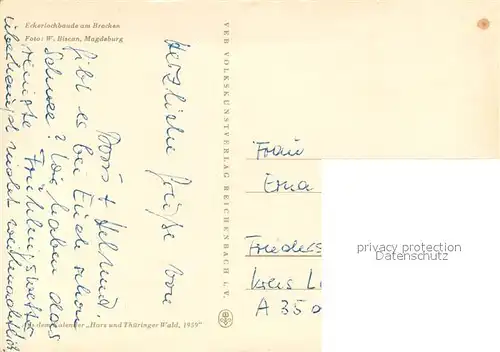 Eckerlochbaude am Brocken
Foto: W. Biscan, Magdeburg
Herzliche Grüße von
Doris + Helmut.
Gibt es bei Euch schon
Schnee? Wir haben das
reinste Frühlingswetter
überhaupt nicht weihnachtlich
VEB VOLKSKUNSTVERLAG REICHENBACH i. V.
Frau
Erna
Frieders
Kreis L
A 350
privacy protection
Datenschutz
dem Kalender „Harz und Thüringer Wald, 1959“